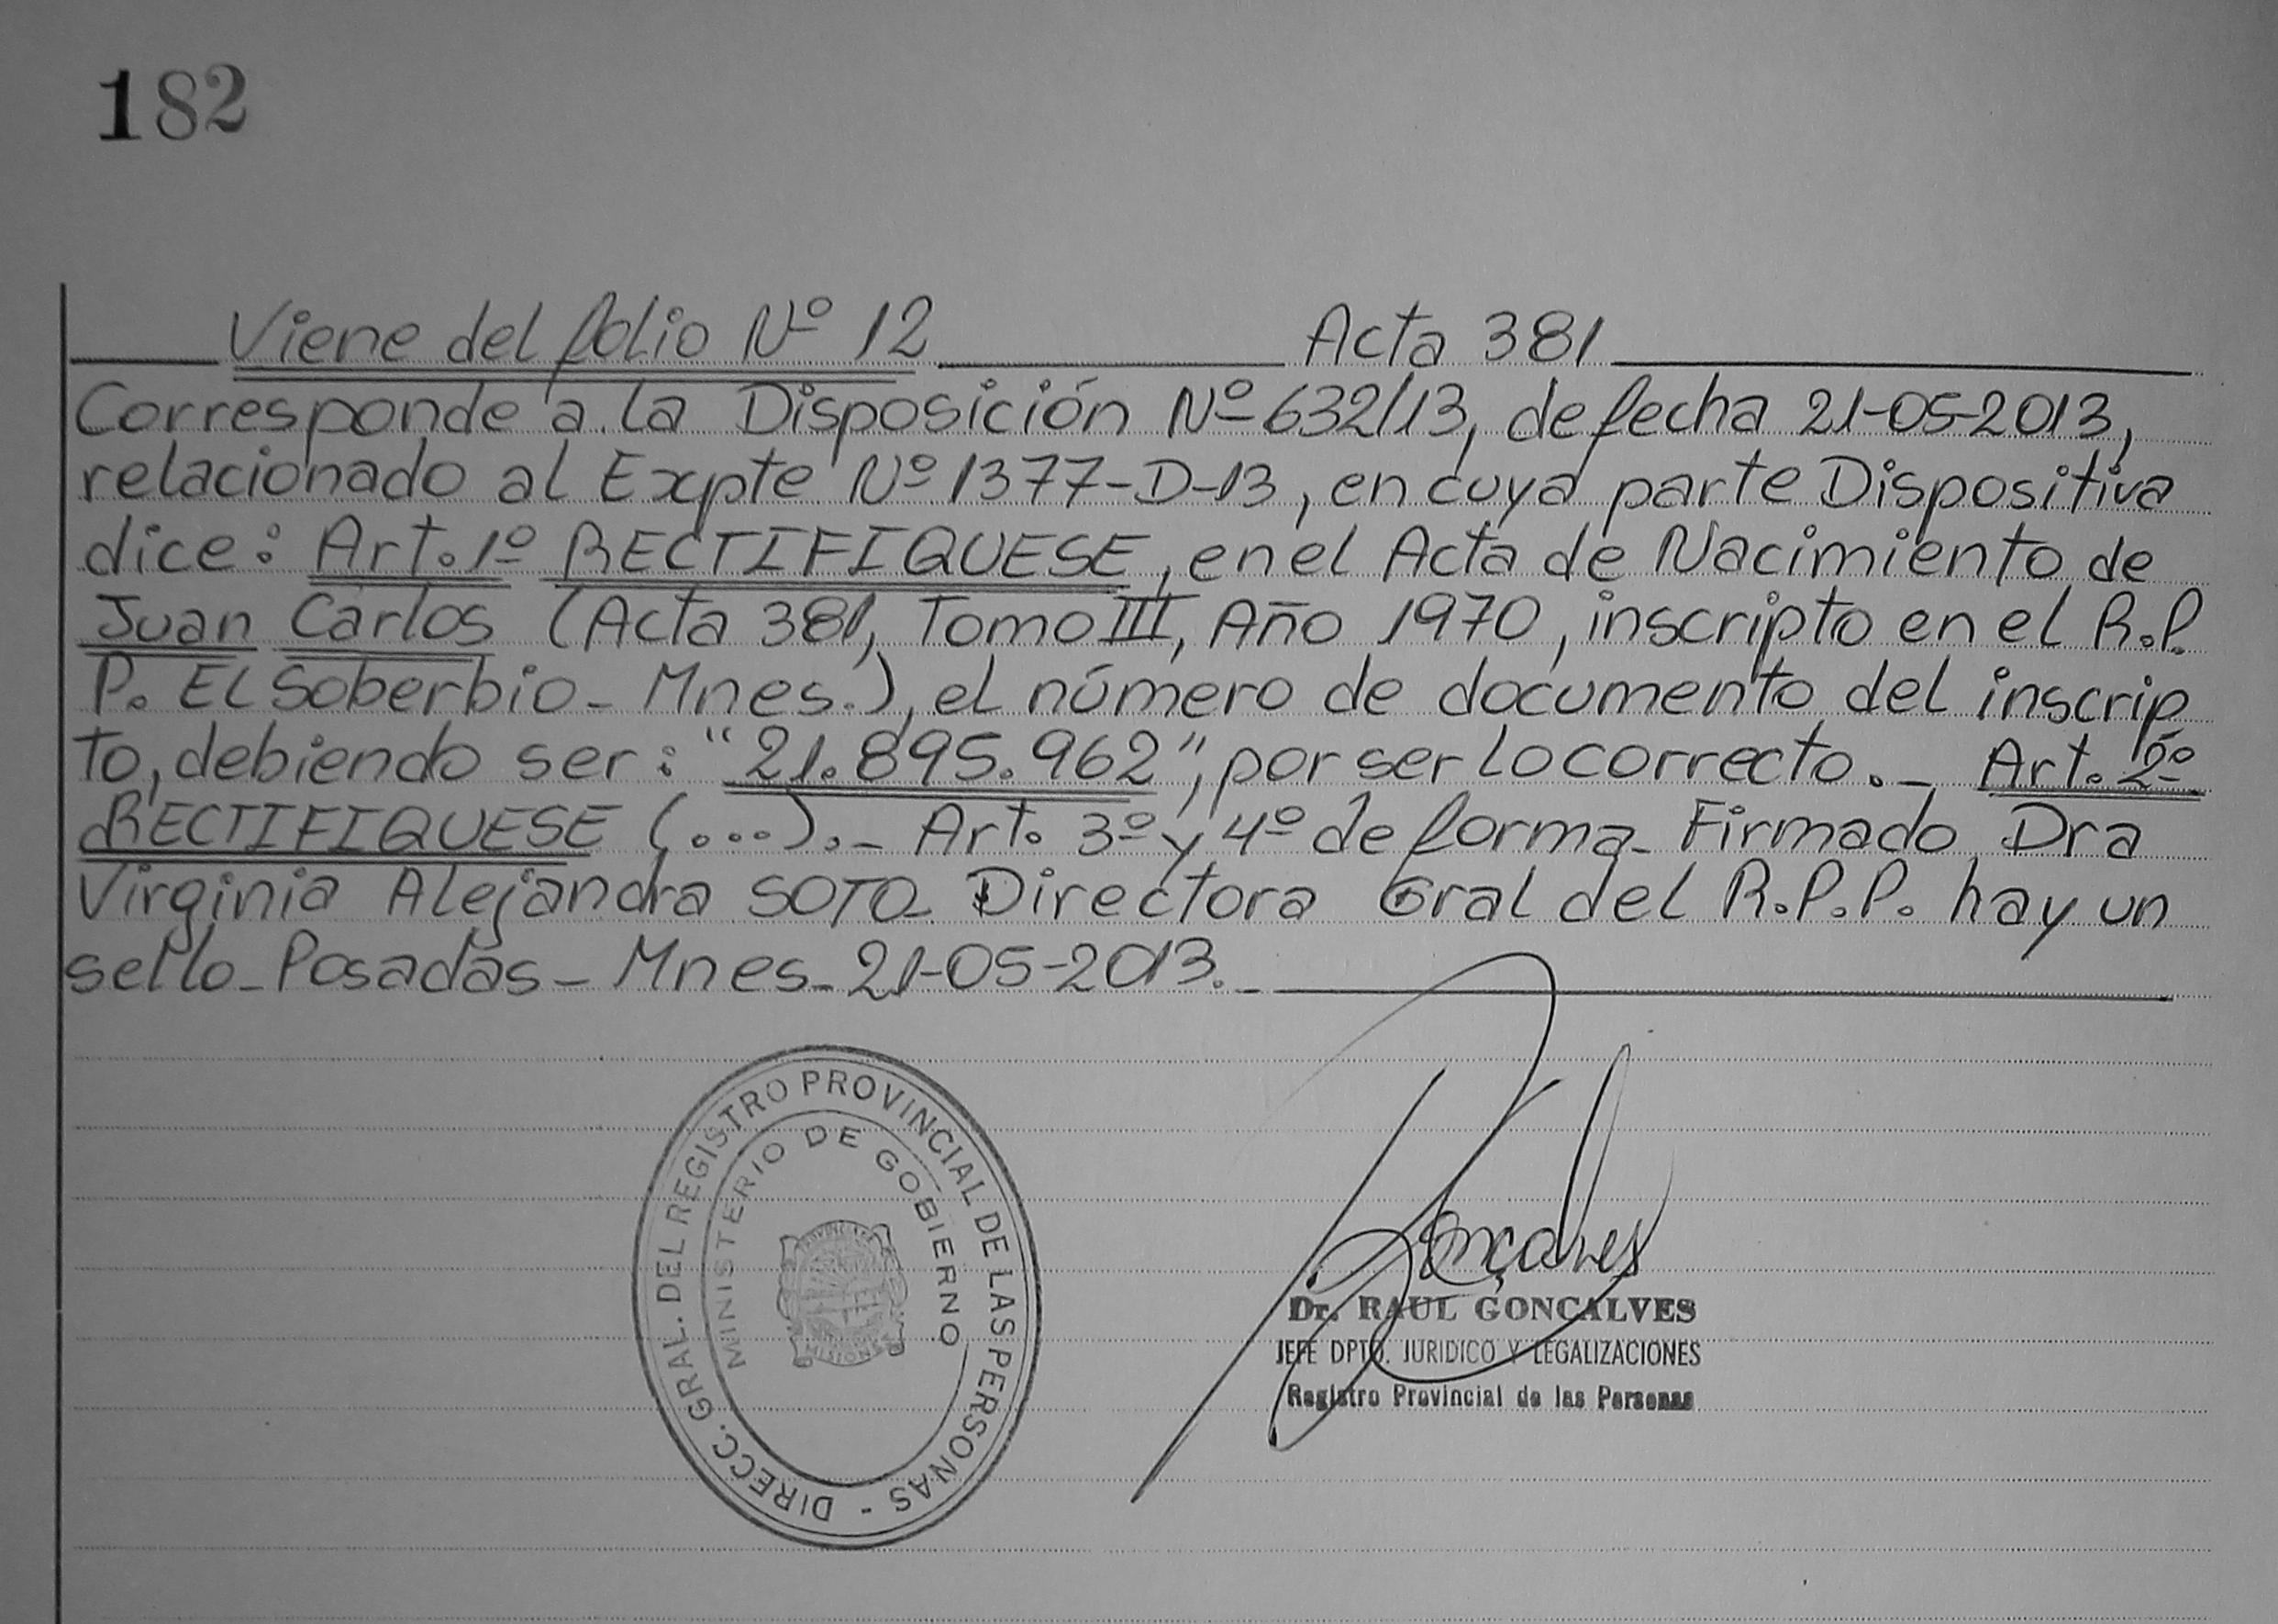 182
Viene del folio Nº 12 Acta 381
Corresponde a la Disposición Nº 632/13, de fecha 21-05-2013,
relacionado al Expte Nº 1377-D-13, en cuya parte Dispositiva
dice: Art. 1º RECTIFIQUESE, en el Acta de Nacimiento de
Juan Carlos (Acta 381, Tomo III, Año 1970, inscripto en el R.P.
P. El Soberbio - Mnes.), el número de documento del inscrip
to, debiendo ser: "21.895.962", por ser lo correcto. - Art. 2º
RECTIFIQUESE (...). - Art. 3º y 4º de forma - Firmado Dra
Virginia Alejandra SOTO - Directora Gral del R.P.P. hay un
sello - Posadas - Mnes - 21-05-2013. -
DIRECC. GRAL. DEL REGISTRO PROVINCIAL DE LAS PERSONAS -
MINISTERIO DE GOBIERNO
PROVINCIA DE
MISIONES
Gonçalves
Dr. RAUL GONCALVES
JEFE DPTO. JURIDICO Y LEGALIZACIONES
Registro Provincial de las Personas